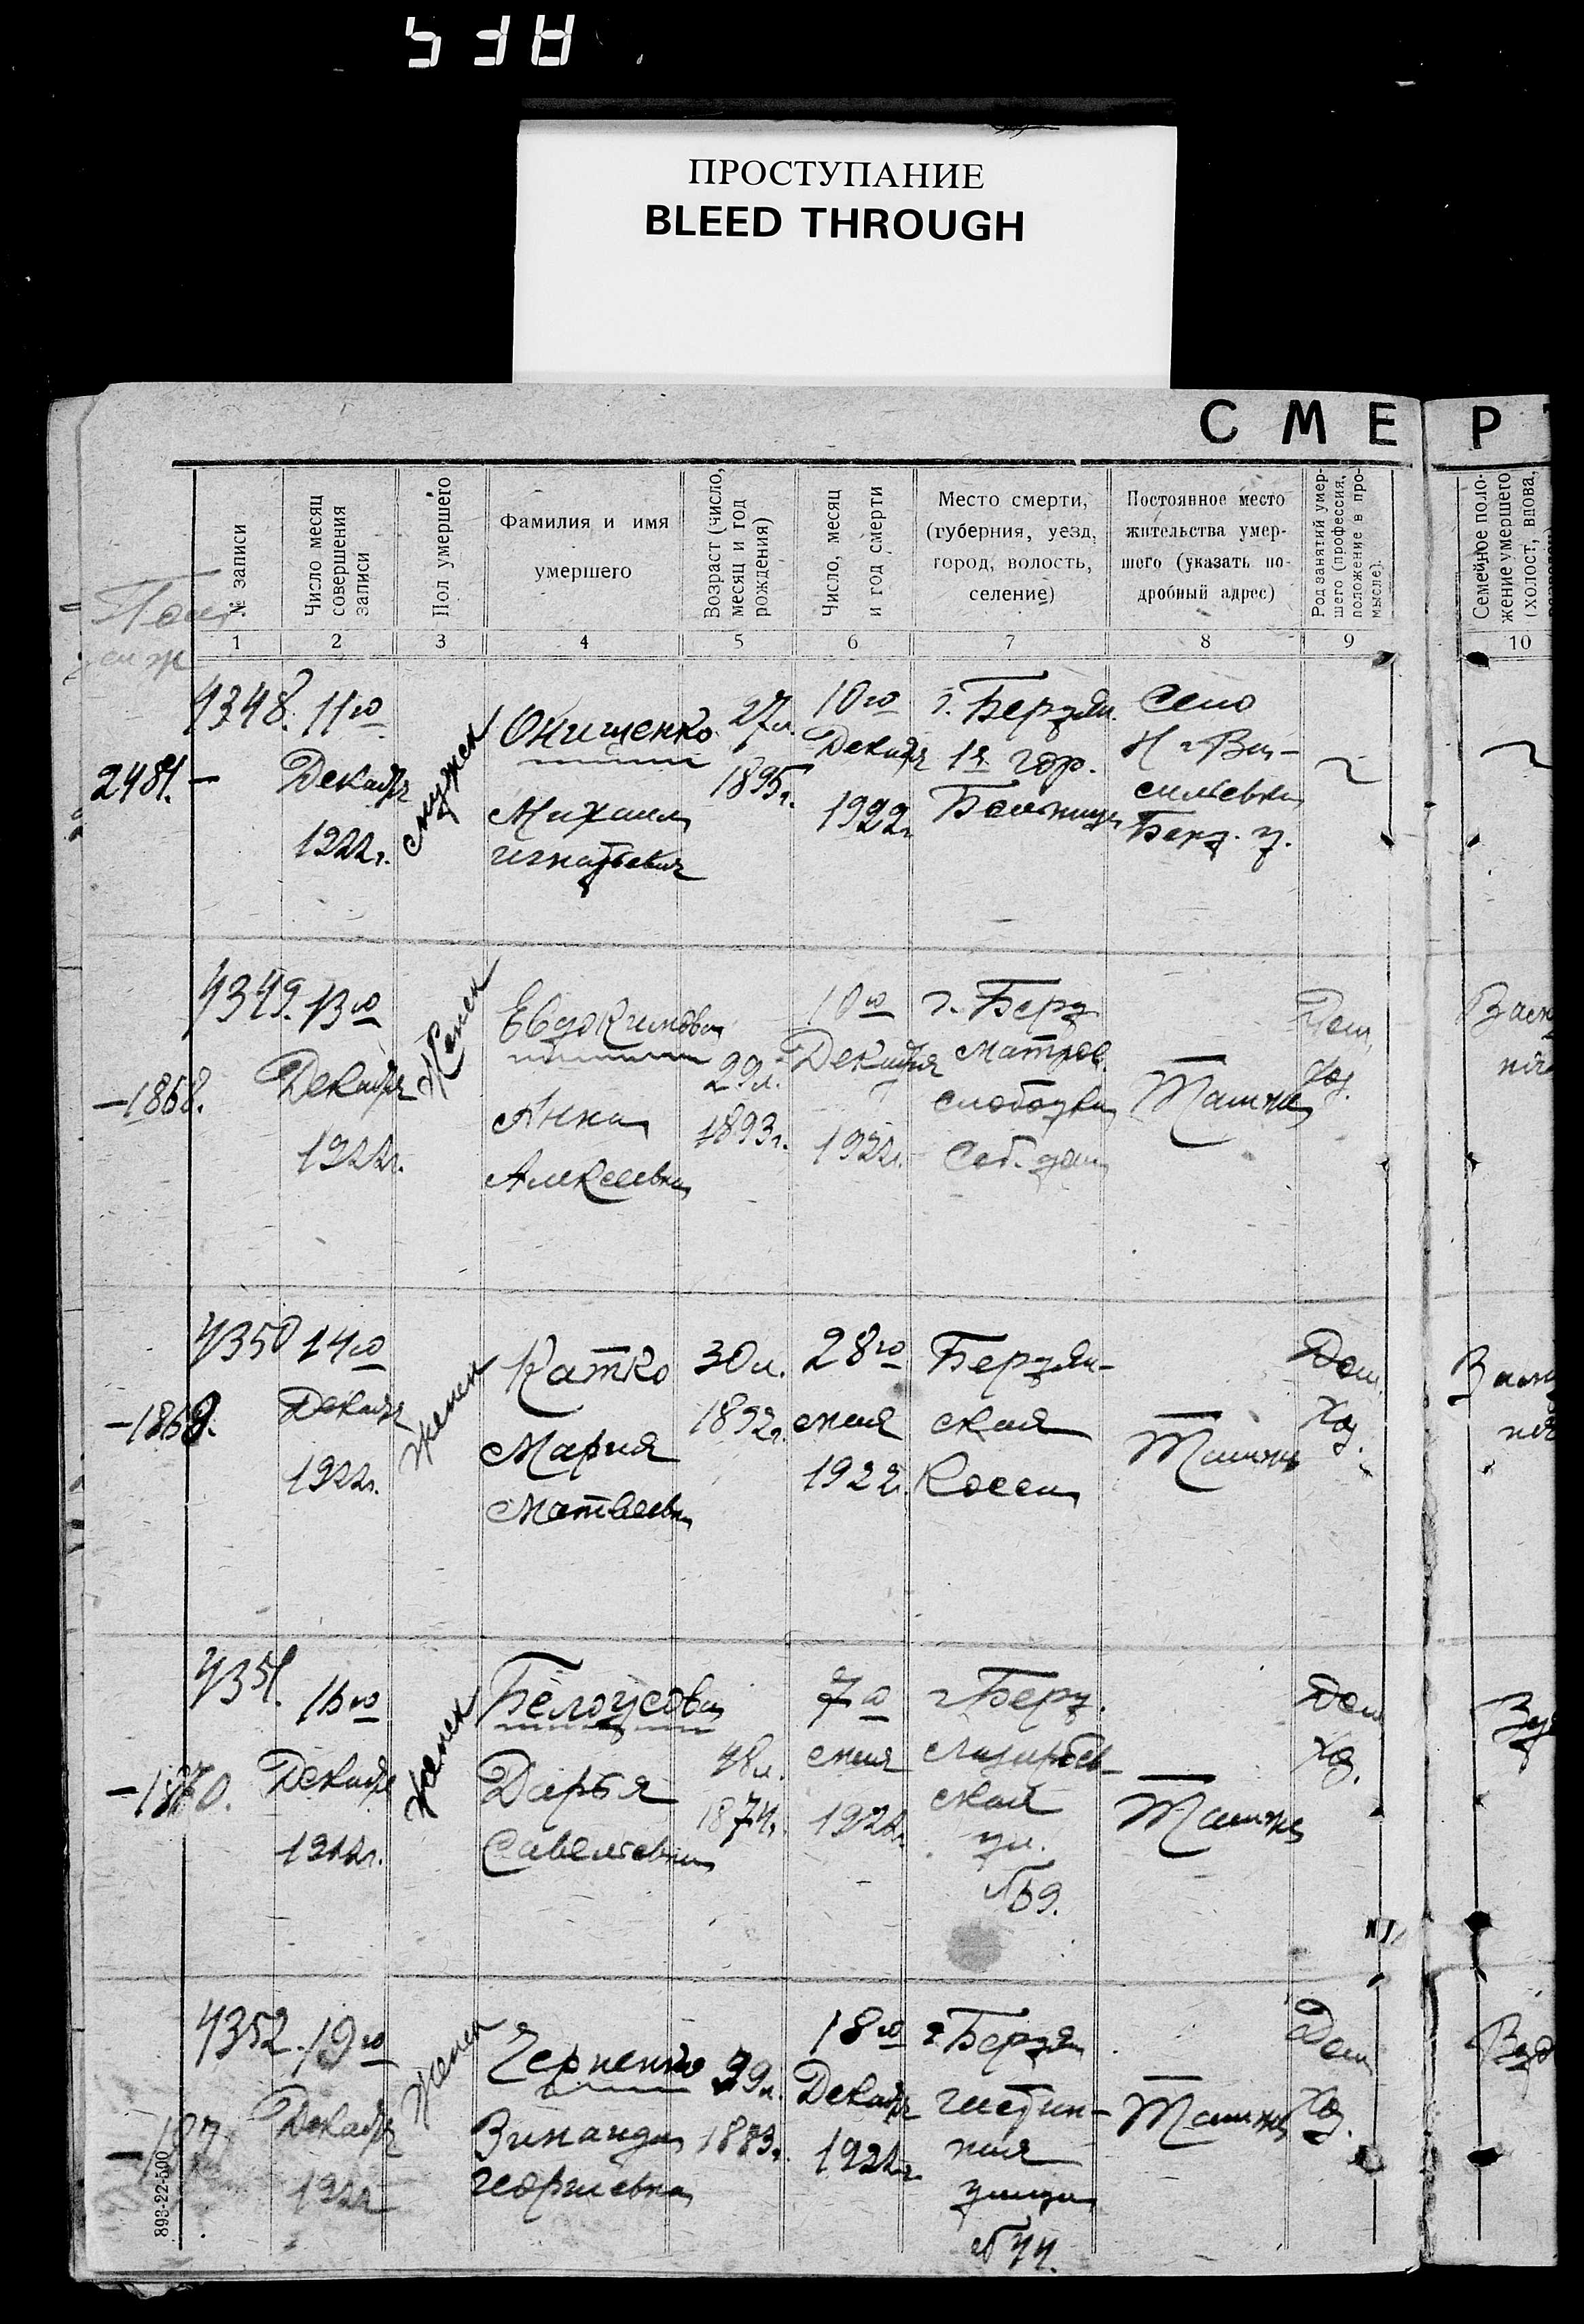 ПРОСТУПАНИЕ
BLEED THROUGH
СМЕ Р
№ записи
Число месяц
совершения
записи
Пол умершего
Фамилия и имя
умершего
Возраст (число,
месяц и год
рождения)
Число, месяц
и год смерти
Место смерти,
(губерния, уезд,
город, волость,
селение)
Постоянное место
жительства умер-
шего (указать по-
дробный адрес)
Род занятий умер-
шего (профессия,
положение в про-
мысле).
Семейное поло-
жение умершего
(холост, вдова,
1 2 3 4 5 6 7 8 9 10
4348.
2481. —
11го
Декабря
1922г.
мужск
Онищенко
Михаил
Игнатьевич
27л.
1895г.
10го
Декабря
1922г
г. Бердян.
1я гор.
Больница
Село
Н. Ва-
сильевка
Берд. у.
4349.
—1868.
13го
Декабря
1922г.
Женск
Евдокимова
Анна
Алексеевна
29л.
1893г.
10го
Декабря
1922г.
г. Берд
матрос.
слободка
Соб. дом
— Там же
Дом.
Хоз.
4350
—1869.
14го
Декабря
1922г.
Женск
Катко
Мария
Матвеевна
30л.
1892г.
28го
мая
1922г.
Бердян-
ская
Коса
— Там же
Дом.
Хоз.
4351.
—1870.
Декабря
1922г.
Женск
Белоусова
Дарья
Савельевна
48л.
1874г.
7го
мая
1922г.
г Берд.
ская
ул.
— Там же
Дом
Хоз.
4352.
19го
Декабря
1922
Женск
Черненко
Зинаида
Георгиевна
39л.
1883г.
18го
Декабря
1922г.
г. Бердян
ная
улица
№ 44.
— Там же
Дом
Хоз.
893-22-500